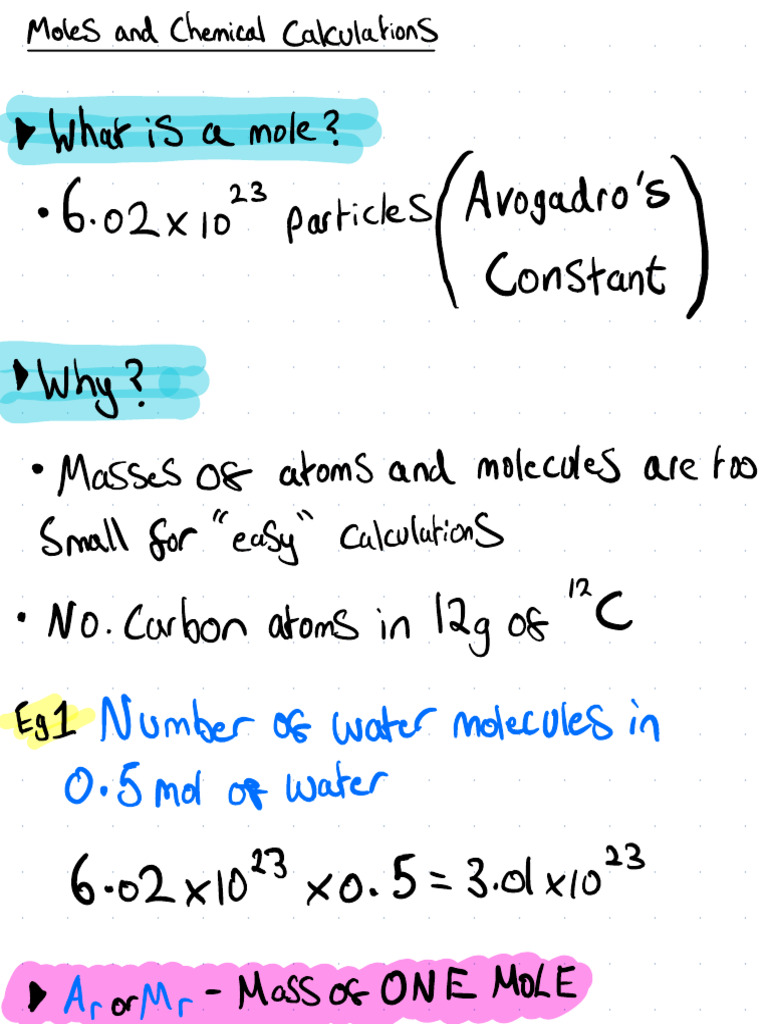 Moles and Chemical Calculations
▶ What is a mole?
• 6.02 x 10²³ particles (Avogadro's
Constant)
▶ Why?
• Masses of atoms and molecules are too
small for "easy" calculations
• No. Carbon atoms in 12g of ¹²C
Eg1 Number of water molecules in
0.5 mol of water
6.02 x 10²³ x 0.5 = 3.01 x 10²³
▶ Ar or Mr - Mass of ONE MOLE